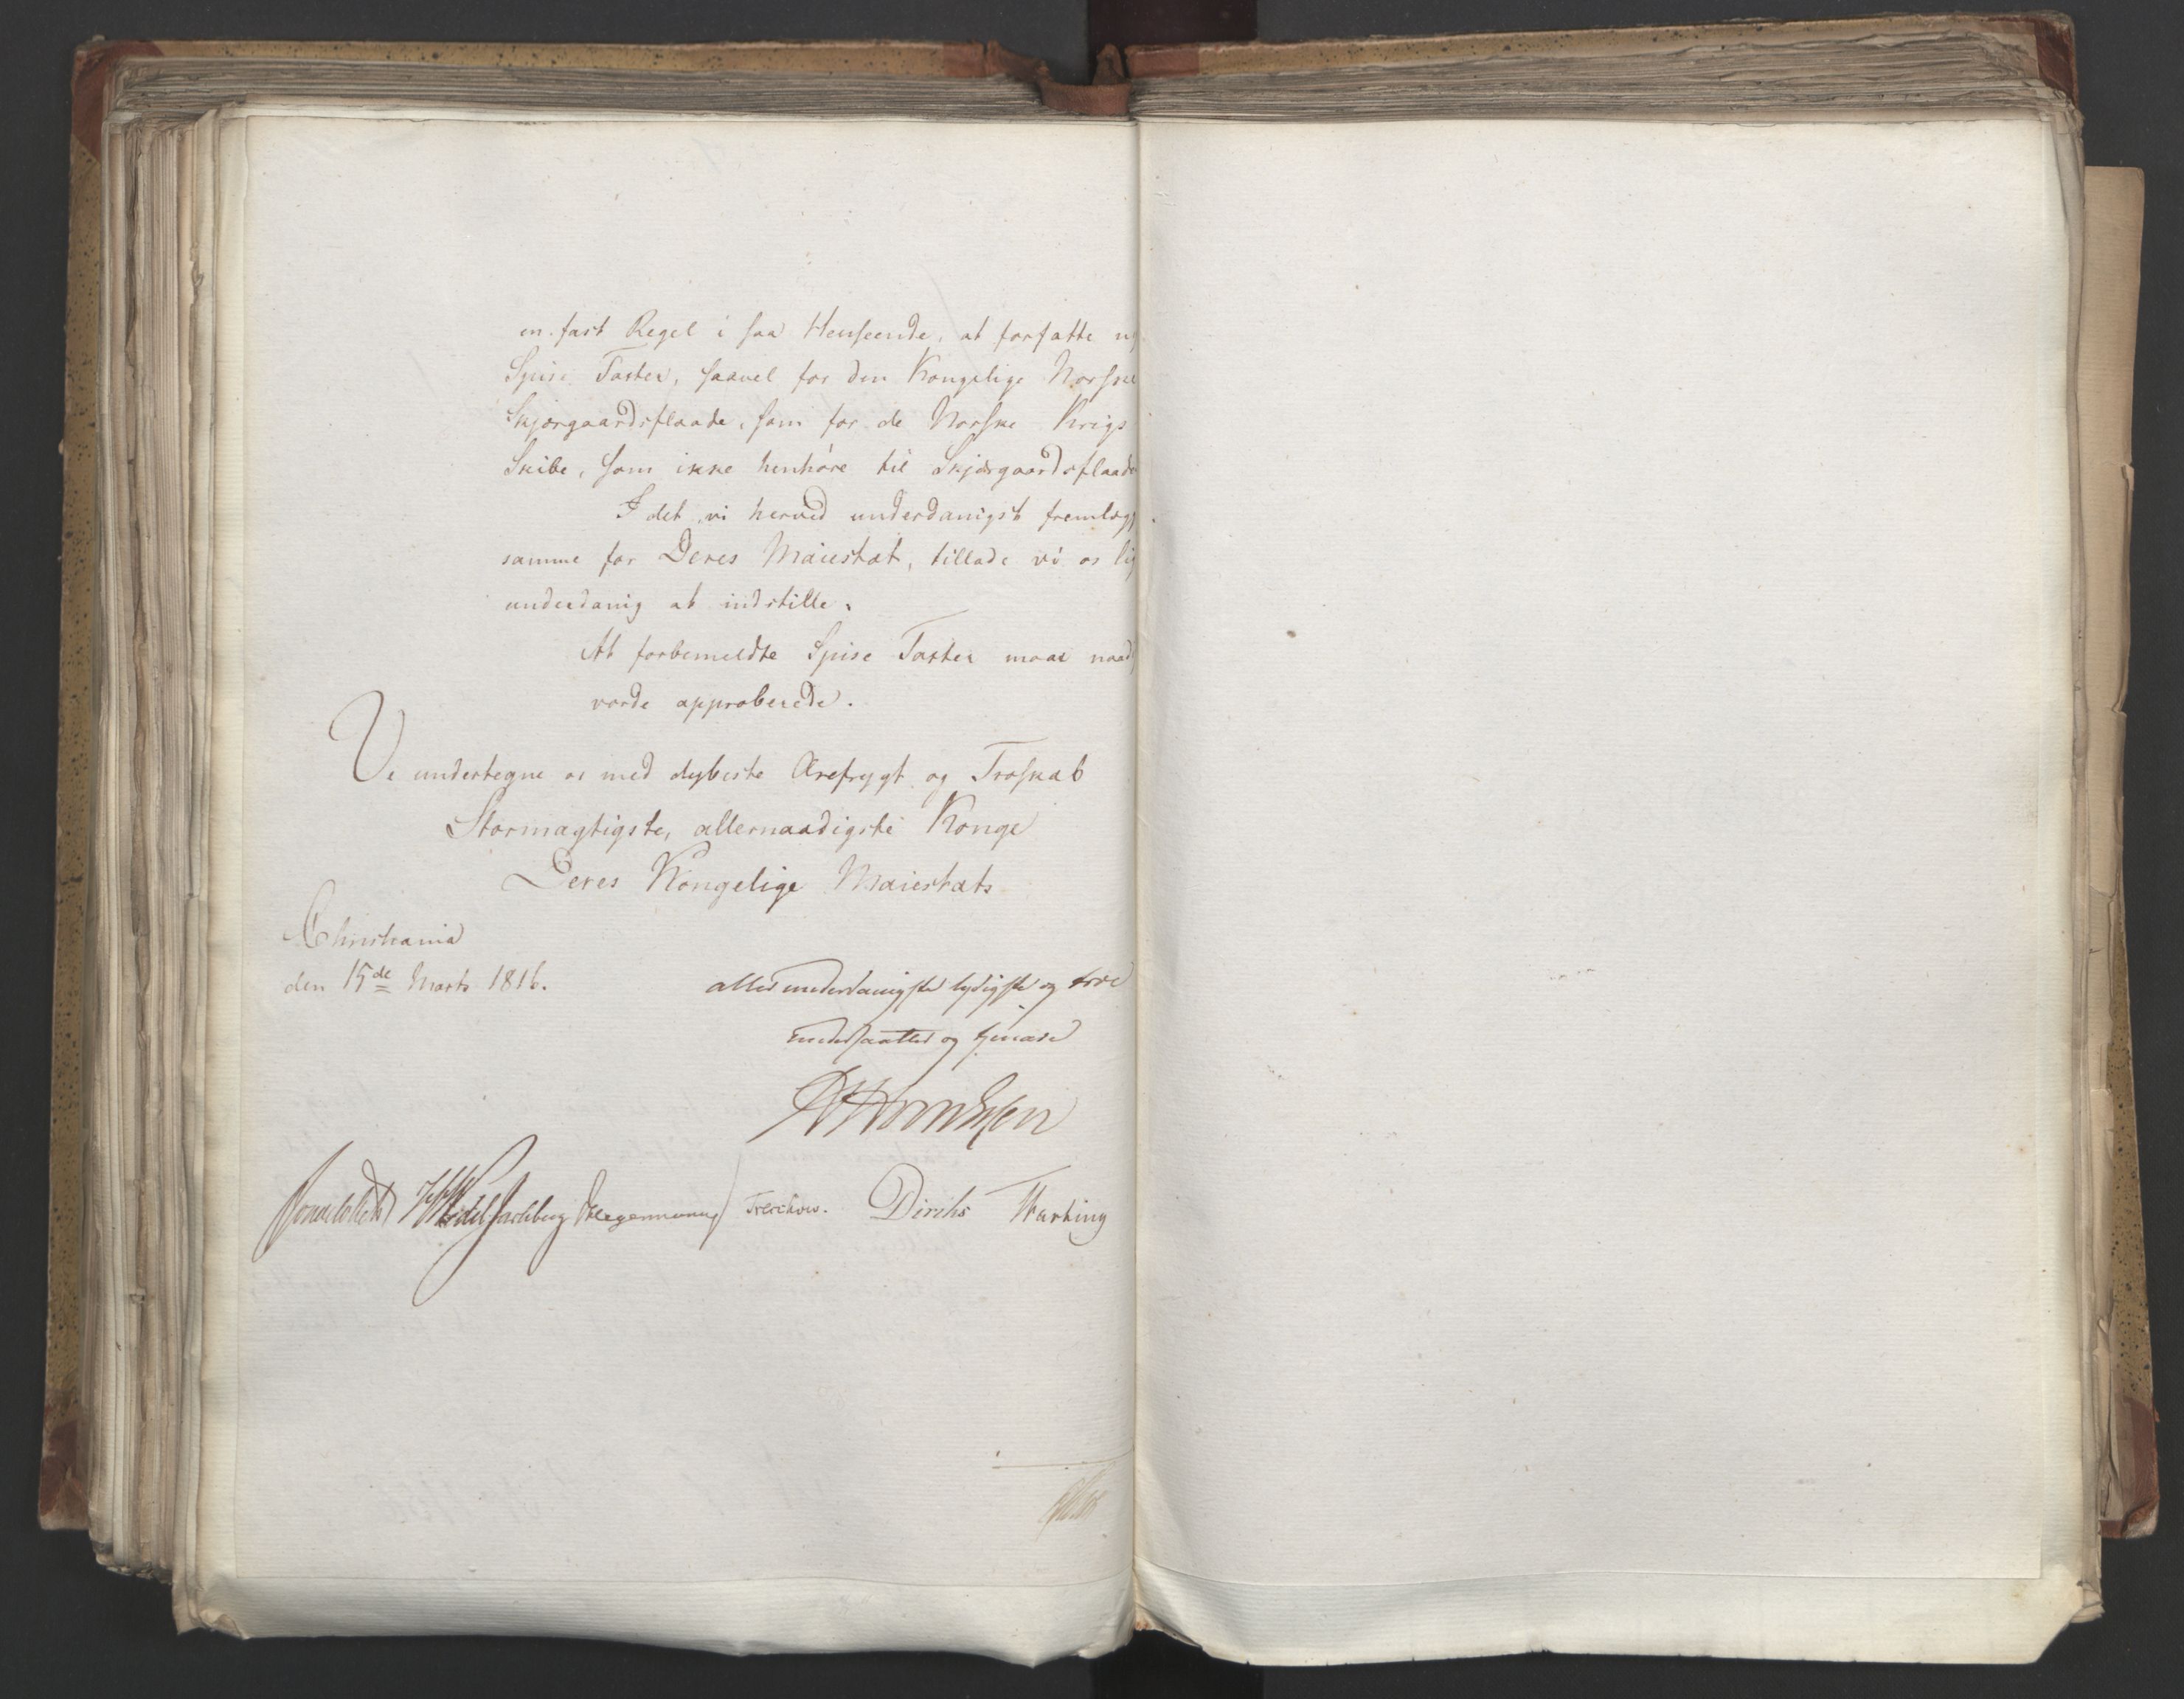 en fast Regel i saa Henseende, at forfatte ny
Spise Taxter, saavel for den Kongelige Norske
Skjærgaardsflaade, som for de Norske Krigs
Skibe, som ikke henhøre til Skjærgaardsflaade
I det vi herved underdanigst fremlægg
samme for Deres Maiestæt, tillade vi os lig
underdanig at indstille.
At forbemeldte Spise Taxter maae naad
vorde approberede.
Vi undertegne os med dybeste Ærefrygt og Troskab
Stormægtigste, allernaadigste Konge
Deres Kongelige Maiestæts
Christiania
den 15de Marts 1816.
allerunderdanigste lydigste og troe
undersaatter og tjenere
Sommerfeldt Wedel Jarlsberg Hegermann Treschow. Diriks